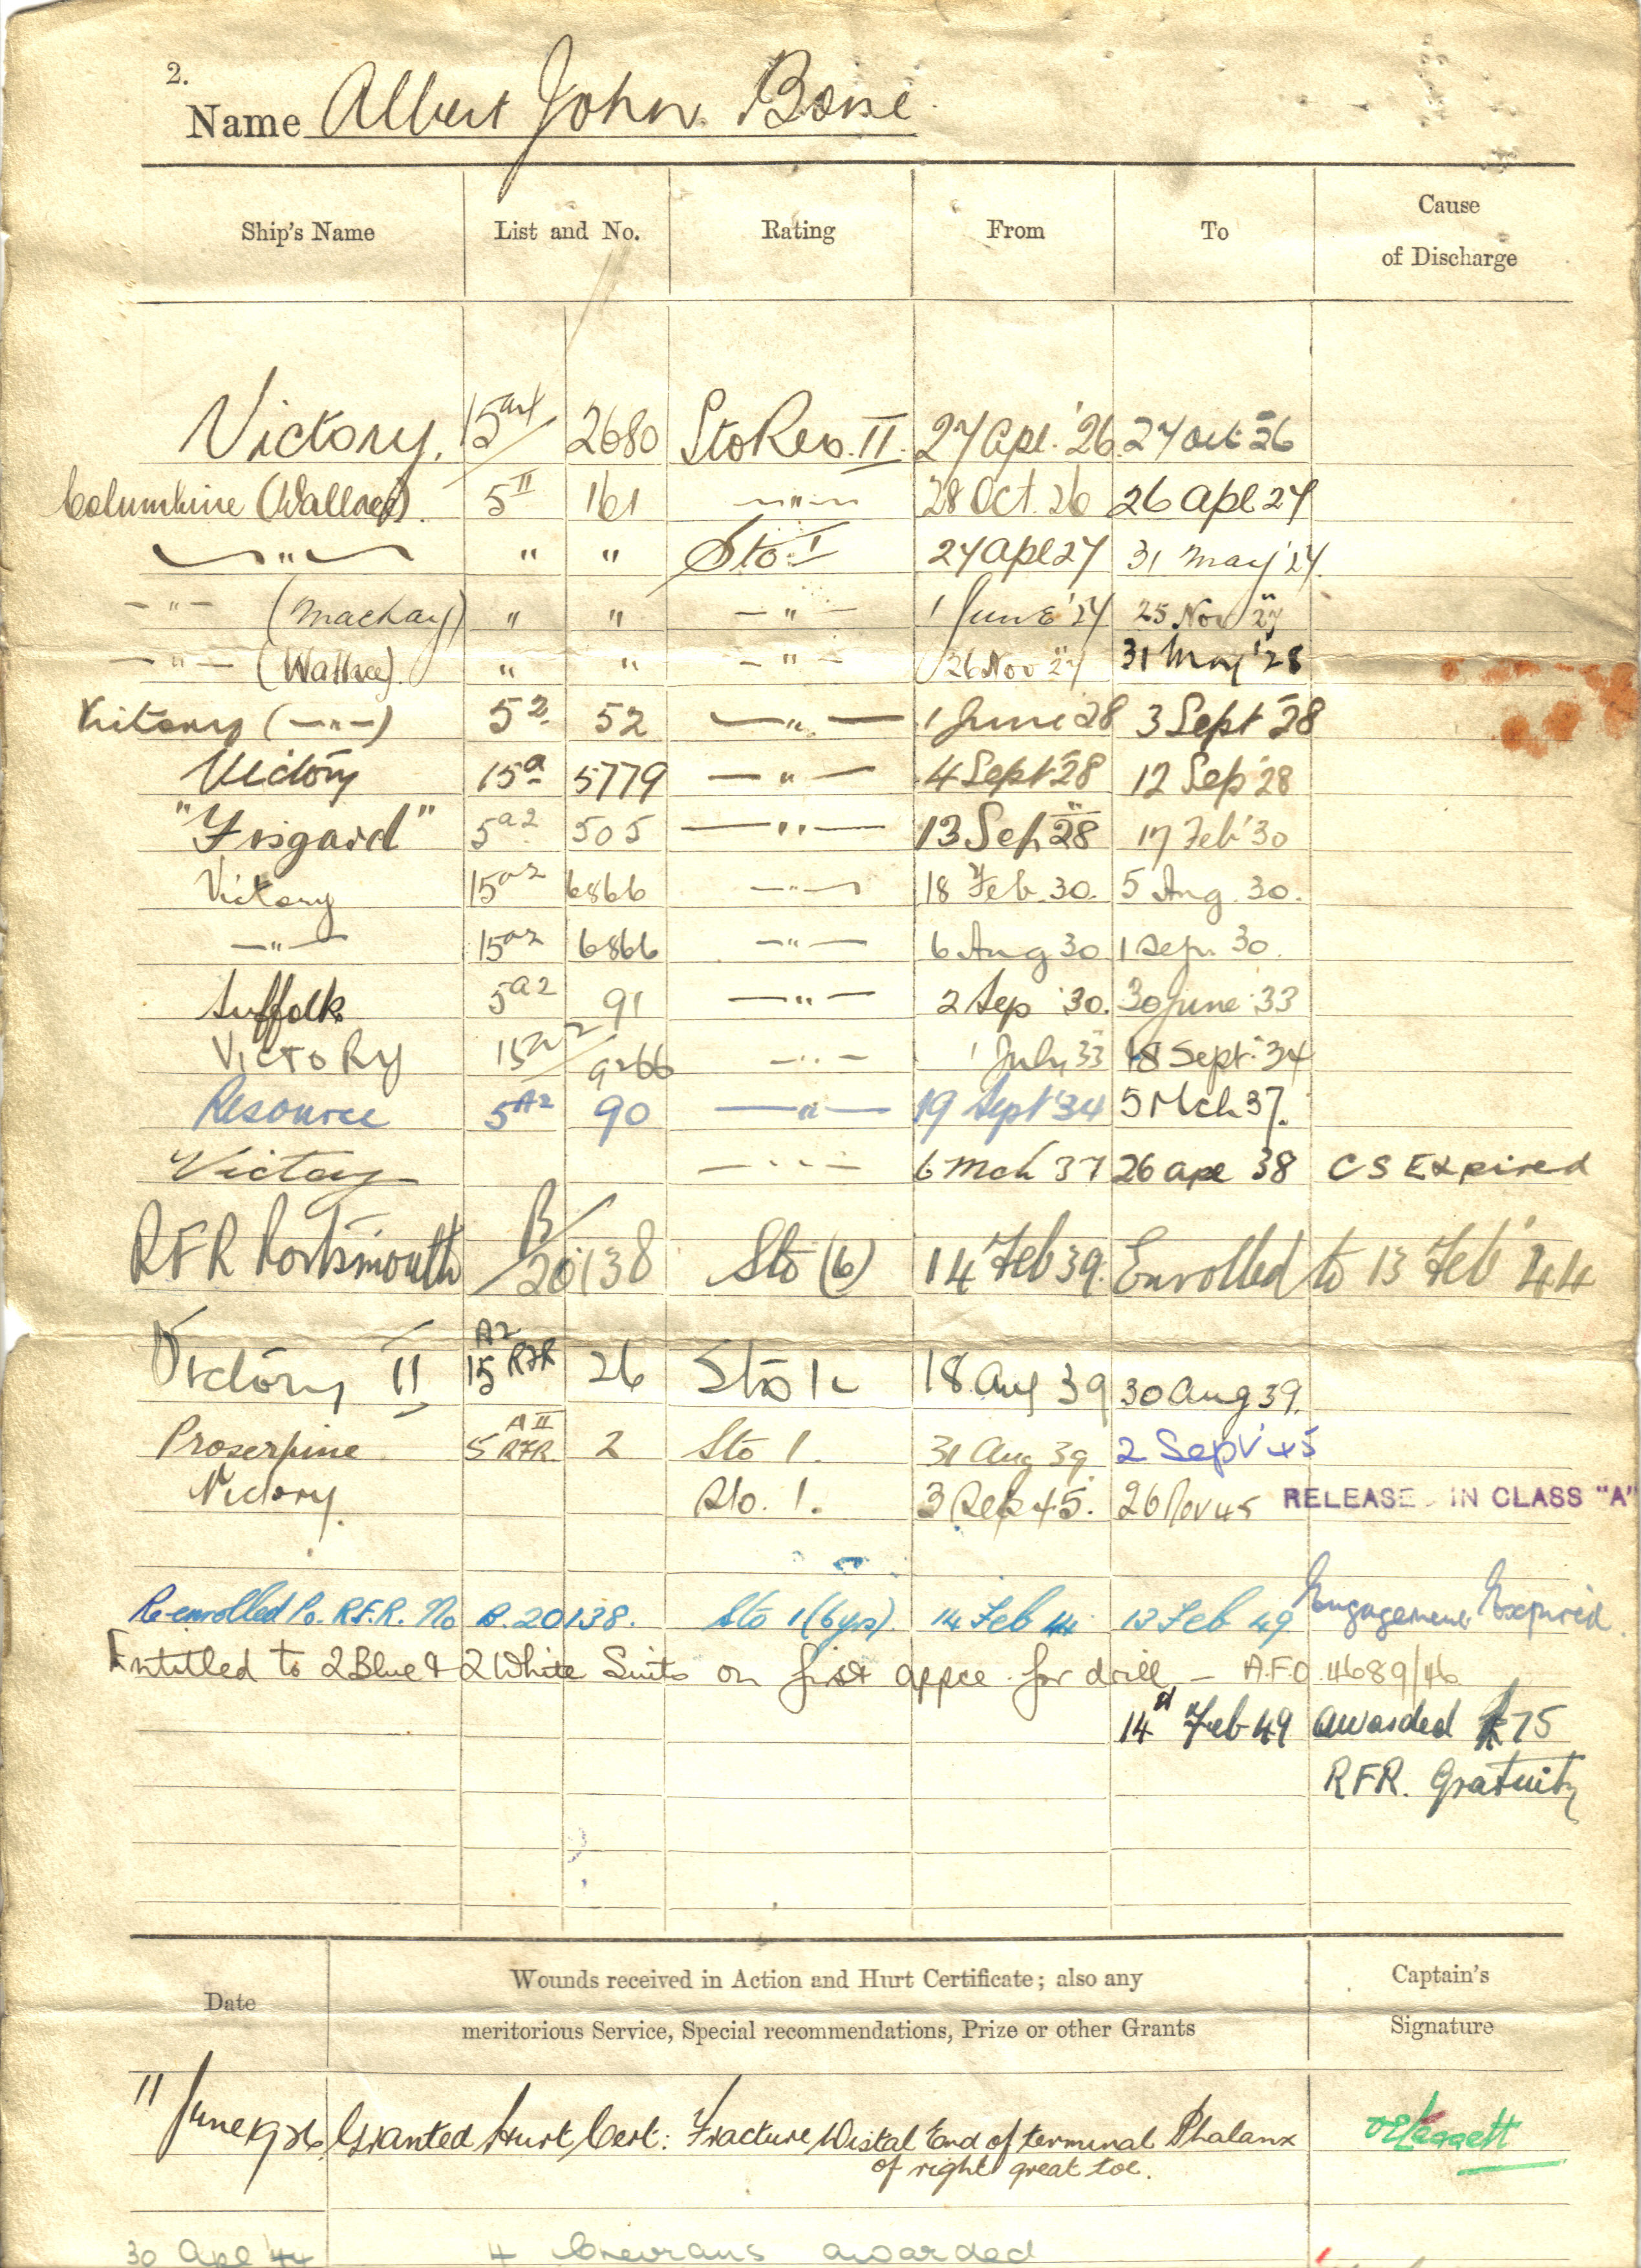 2.
Name Albert John Bone
Ship's Name List and No. Rating From To Cause of Discharge
Victory. 15 2680 Sto II. 27 Apl. '26 27 Oct 26
Columbine (Wallace). 5 II 161 —"— 28 Oct. 26 26 Apl 27
—"— " " Sto. I 27 Apl 27 31 May '27.
—"— (Mackay) " " —"— 1 June '27 25 Nov 27
—"— (Wallace). " " —"— 26 Nov 27 31 May '28
Victory (—"—) 5 2 52 —"— 1 June 28 3 Sept 28
Victory 15 a 5779 —"— 4 Sept 28 12 Sep '28
"Fisgard" 5 a2 505 —"— 13 Sep 28 17 Feb '30
Victory 15 a2 6866 —"— 18 Feb. 30. 5 Aug. 30.
—"— 15 a2 6866 —"— 6 Aug 30 1 Sep. 30.
Suffolk 5 a2 91 —"— 2 Sep '30. 30 June '33
VICTORY 15 a2 9266 —"— 1 July 33 18 Sept. 34
Resource 5 A2 90 —"— 19 Sept '34 5 Mch 37.
Victory —"— 6 Mch 37 26 Apl 38 CS Expired
RFR Portsmouth B/20138 Sto (6) 14 Feb 39. Enrolled to 13 Feb' 44
Victory II A2 15 RFR 26 Sto 1. 18 Aug 39 30 Aug 39.
Proserpine 5 A II RFR 2 Sto 1. 31 Aug 39 2 Sept '45
Victory. Sto. 1. 3 Sep 45. 26 Nov 45 RELEASE IN CLASS "A"
Re-enrolled Po. R.F.R. No B. 20138. Sto 1 (6 yrs). 14 Feb 44 13 Feb 49 Engagement Expired.
Entitled to 2 Blue & 2 White Suits on first appce. for drill — A.F.O. 4689/46
14 Feb 49 Awarded £75
RFR. Gratuity
Date Wounds received in Action and Hurt Certificate; also any meritorious Service, Special recommendations, Prize or other Grants Captain's Signature
11 June 1926. Granted Hurt Cert: Fracture, Distal End of terminal Phalanx
of right great toe.
30 Apl 44 4 Chevrons awarded